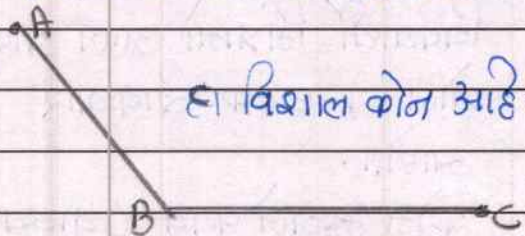 A
हा विशाल कोन आहे
B
C